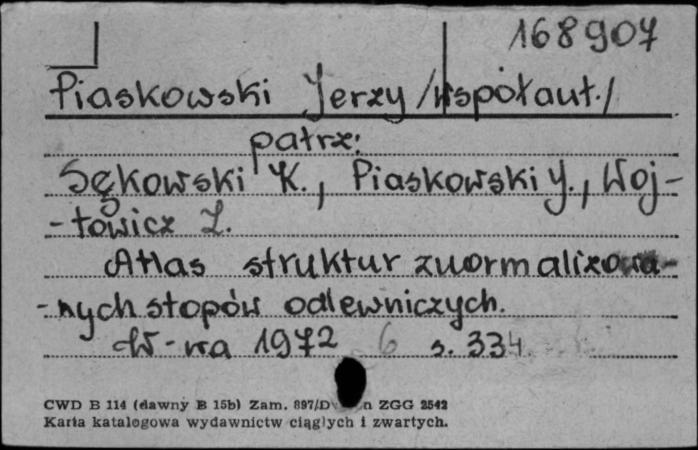 168907
Piaskowski Jerzy /współaut./
patrz:
Sękowski K., Piaskowski J., Woj-
-towicz Z.
Atlas struktur znormalizowa-
-nych stopów odlewniczych.
W-wa 1972 6 s. 334
CWD B 114 (dawny B 15b) Zam. 897/D n ZGG 2542
Karta katalogowa wydawnictw ciągłych i zwartych.